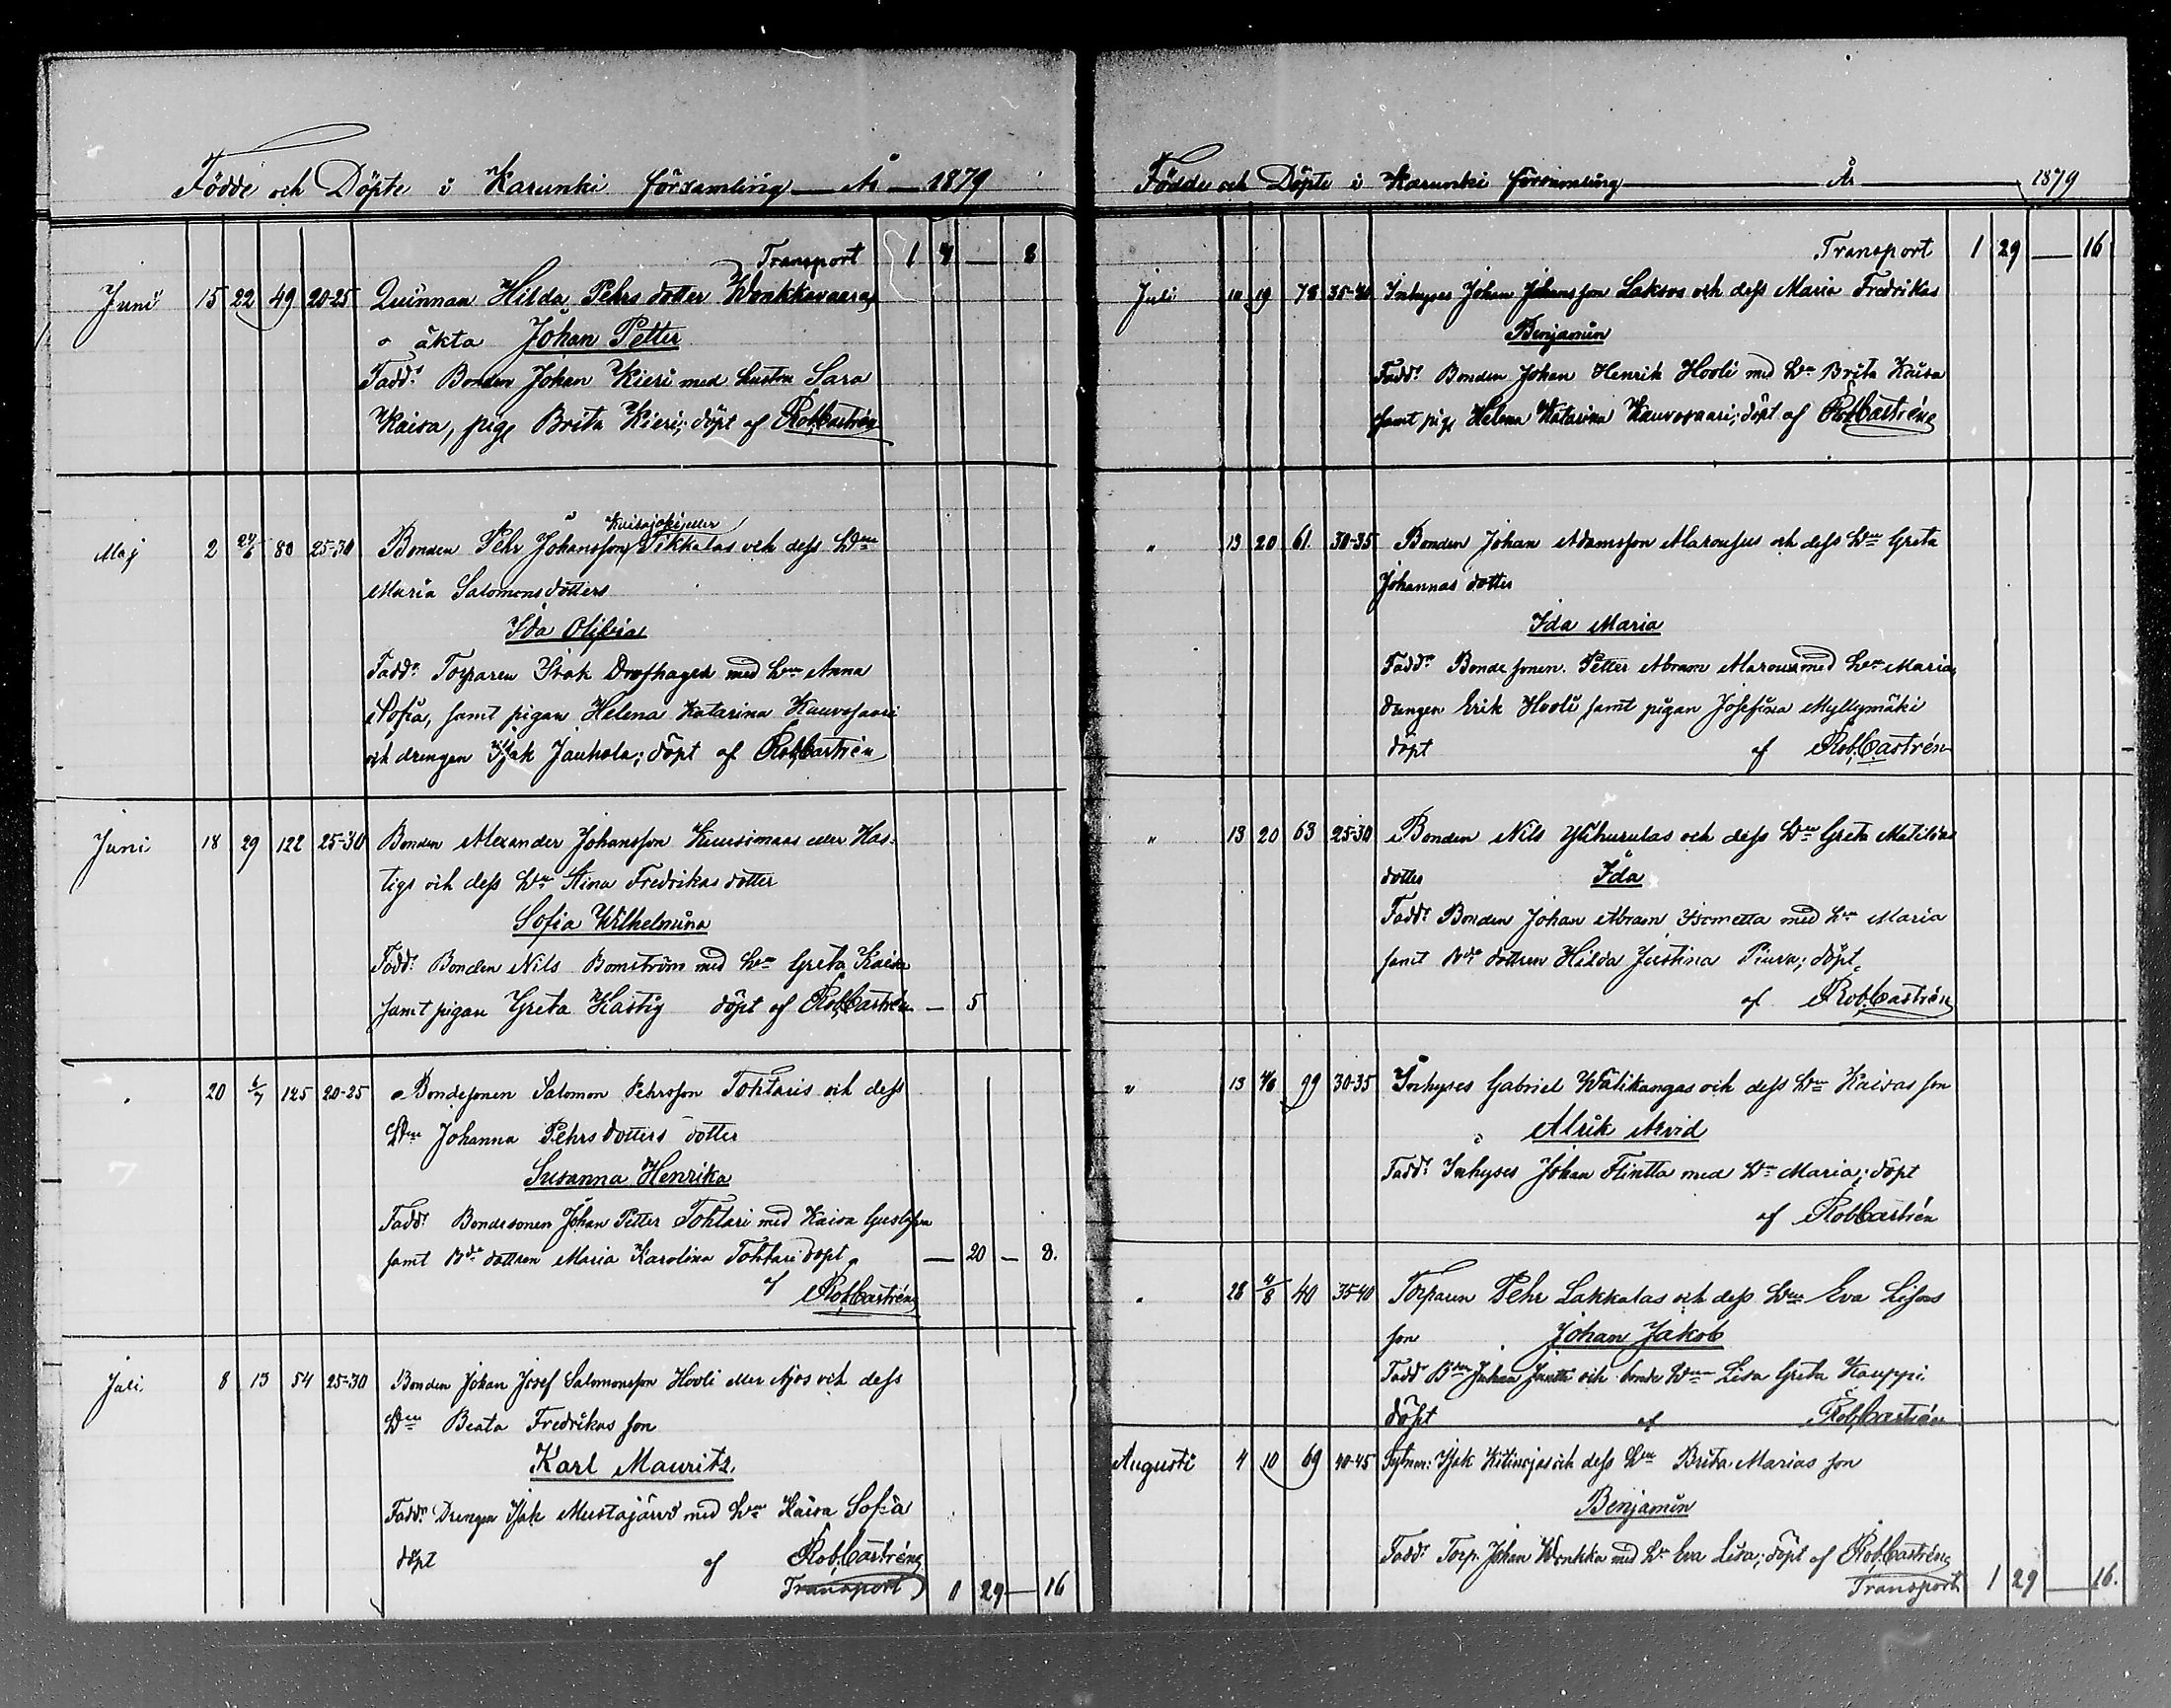 Födde och Döpte i Karunki församling — År — 1879
Transport 1 4 — 8
Juni 15 22 49 20-25 Quinnan Hilda Pehrs dotter Wonkkavaaras
o äkta Johan Petter
Fadd: Bonden Johan Kieri med hustru Sara
Kaisa, pig Brita Kieri; döpt af Rob. Castrén
Maj 2 24/6 80 25-30 Bonden Pehr Johansson Pikkalas och dess Hru
Maria Salomonsdotters
Ida Olivia
Fadd: Torparen Isak Drofhagen med Hru Anna
Sofia, samt pigan Helena Katarina Kauvosaari
och drengen Isak Jauhola; döpt af Rob. Castrén
Juni 18 29 122 25-30 Bonden Alexander Johansson Kuusimaas eller Has-
tigs och dess Hru Stina Fredrikas dotter
Sofia Wilhelmina
Fadd: Bonden Nils Bomström med Hru Greta Kaisa
samt pigan Greta Hastig döpt af Rob. Castrén — 5
" 20 6/7 125 20-25 Bondesonen Salomon Pehrsson Tohtaris och dess
Hru Johanna Pehrsdotters dotter
Susanna Henrika
Fadd: Bondesonen Johan Petter Tohtari med Kaisa
samt Bde dottren Maria Karolina Tohtari döpt — 20 — 8.
af Rob. Castrén
Juli 8 13 54 25-30 Bonden Johan Josef Salomonsson Hooli eller Ajos och dess
Hru Beata Fredrikas son
Karl Mauritz
Fadd: Drengen Isak Mustajärvi med Hru Kaisa Sofia
döpt af Rob. Castrén
Transport 1 29 — 16
Födde och Döpte i Karunki församling — År — 1879
Transport 1 29 — 16
Juli 10 19 78 35-40 Inhyses Johan Johansson Laksos och dess Maria Fredrikas
Benjamin
Fadd: Bonden Johan Henrik Hooli med Hru Brita Kaisa
samt pig Helena Katarina Kauvosaari; döpt af Rob. Castrén
" 13 20 61 30-35 Bonden Johan Adamsson Alarousus och dess Hru Greta
Johannas dotter
Ida Maria
Fadd: Bonde sonen Petter Abram med Hru Maria,
drengen Erik Hooli samt pigan Josefina Myllymäki
döpt af Rob. Castrén
" 13 20 63 25-30 Bonden Nils och dess Hru Greta Matildas
dotter Ida
Fadd: Bonden Johan Abram Isometta med Hru Maria
samt Bde dottren Hilda Justina Piura; döpt
af Rob. Castrén
" 13 99 30-35 Inhyses Gabriel Wälikangas och dess Hru Kaisas son
Alrik Arvid
Fadd: Inhyses Johan Flintta med Hru Maria; döpt
af Rob. Castrén
" 28 4/8 40 35-40 Torparen Pehr Lakkalas och dess Hru Eva Lisas
son Johan Jakob
Fadd Johan och bonde Hru Lisa Greta Kauppi
döpt af Rob. Castrén
Augusti 4 10 69 40-45 Isak och dess Hru Brita Marias son
Benjamin
Fadd: Torp. Johan Wonkka med Hru Eva Lisa; döpt af Rob. Castrén
Transport 1 29 — 16.